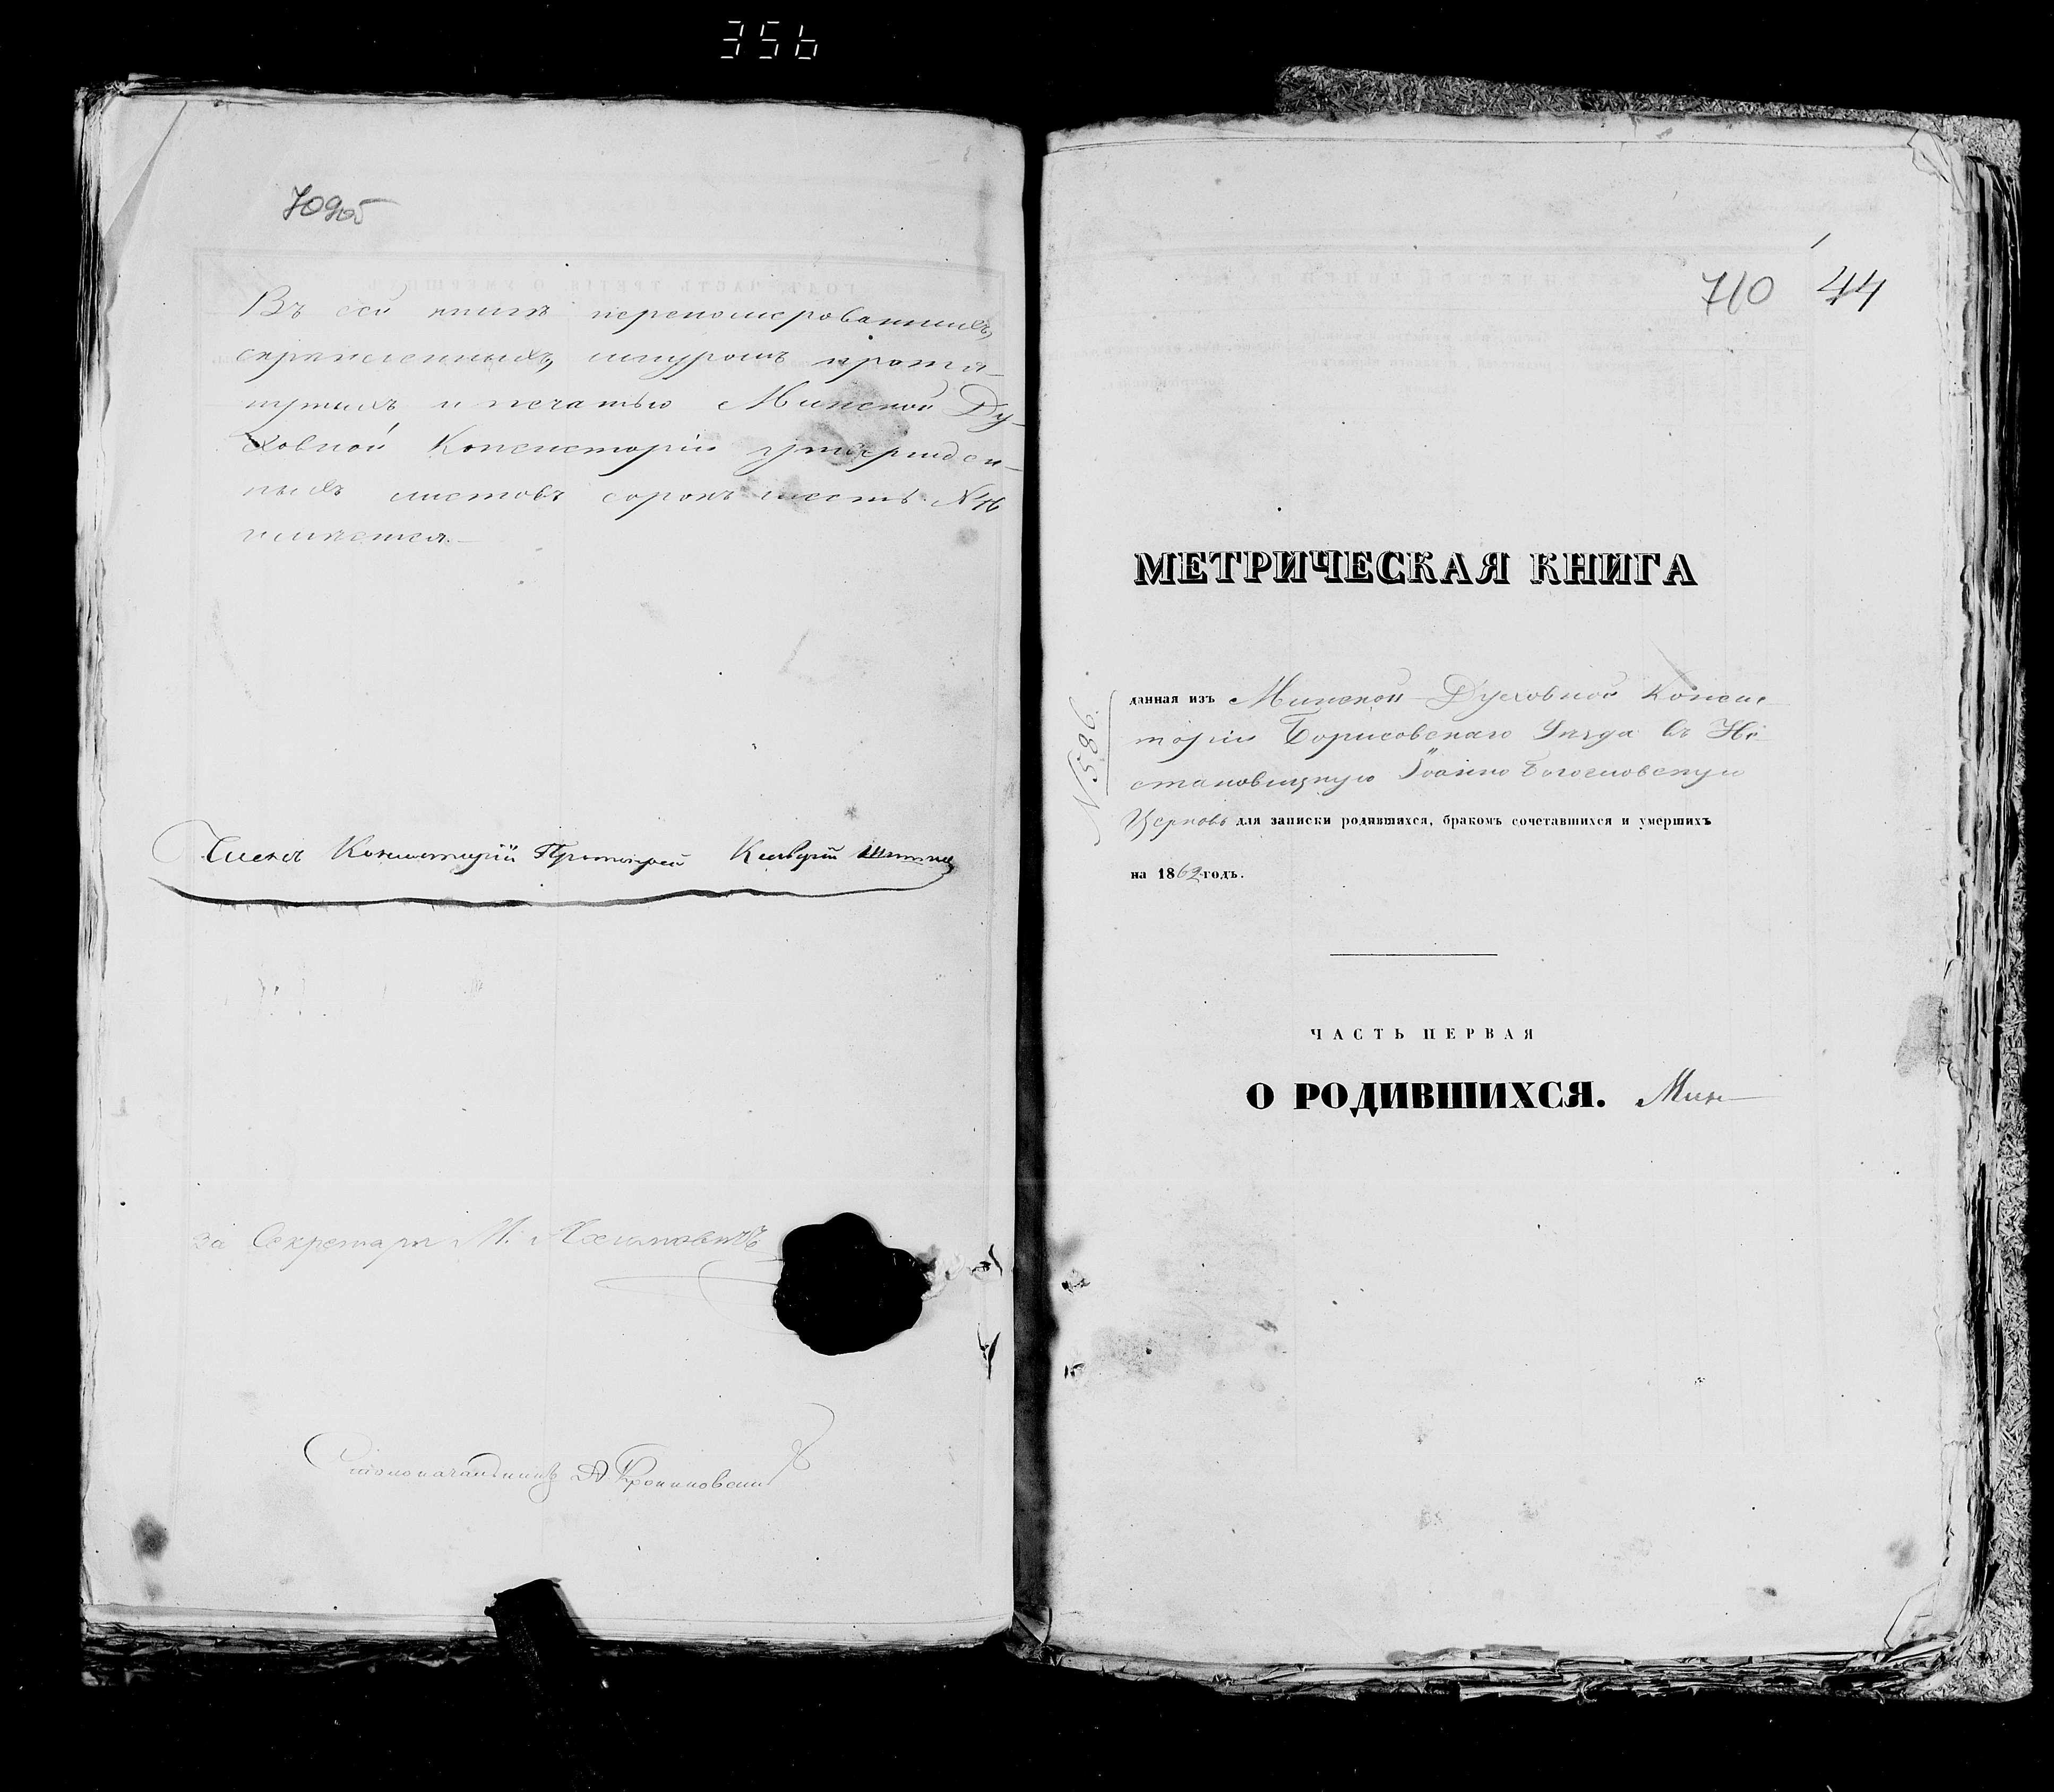 356
709об
Въ сей книгѣ переномерованныхъ,
скрѣпленныхъ, шнуромъ протя-
нутыхъ и печатью Минской Ду-
ховной Консисторіи утвержден-
ныхъ листовъ сорокъ шесть № 46
имѣется.
Членъ Консисторіи Протоіерей
За Секретаря М.
Столоначальникъ А
710 44
МЕТРИЧЕСКАЯ КНИГА
№ 586.
данная изъ Минской Духовной Консис-
торіи Борисовскаго Уѣзда въ
Іоанно Богословскую
Церковь для записки родившихся, бракомъ сочетавшихся и умершихъ
на 1862 годъ.
ЧАСТЬ ПЕРВАЯ
О РОДИВШИХСЯ. Мин